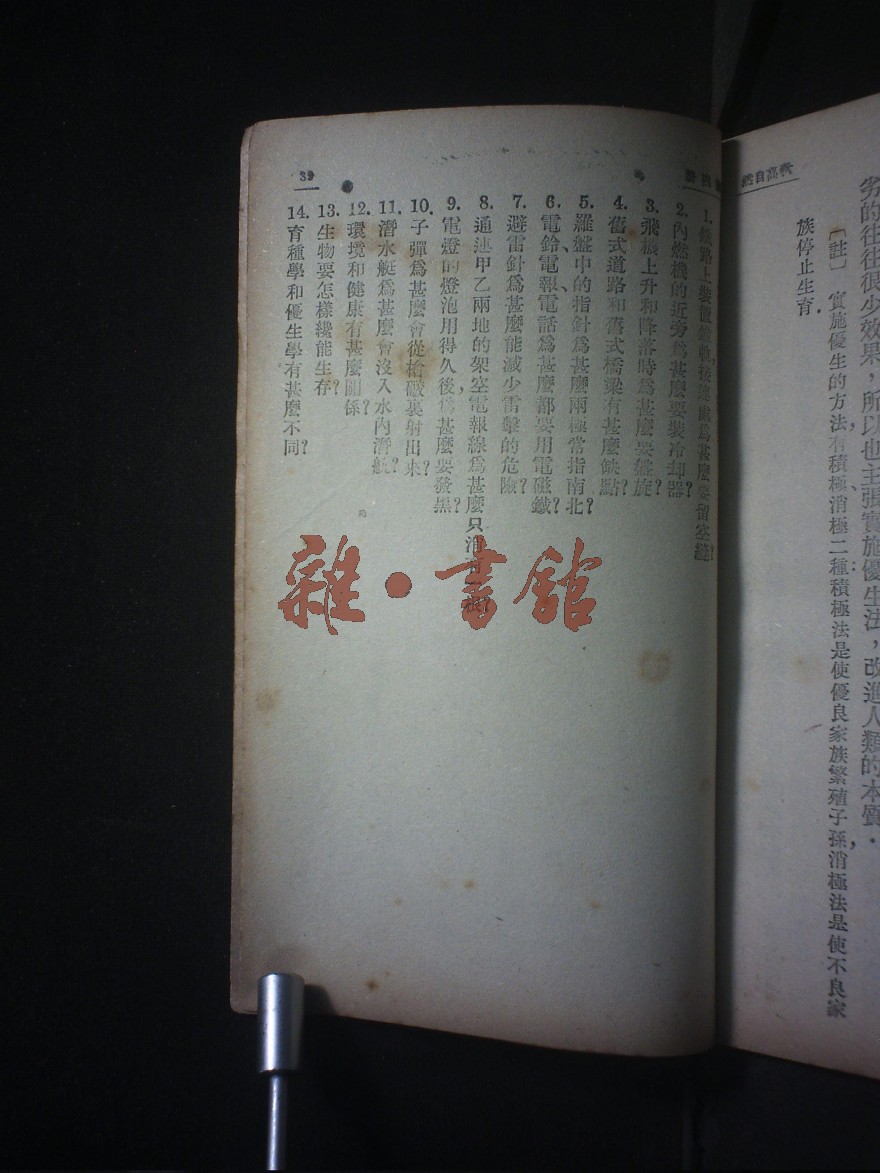 高自然
劣的往往很少效果，所以也主張實施優生法，改進人類的本質．
〔註〕實施優生的方法有積極、消極二種：積極法是使優良家族繁殖子孫，消極法是使不良家
族停止生育．
39
1. 鐵路上裝置鐵軌，接連處爲甚麼要留空縫？
2. 內燃機的近旁爲甚麼要裝冷却器？
3. 飛機上升和降落時爲甚麼要盤旋？
4. 舊式道路和舊式橋梁有甚麼缺點？
5. 羅盤中的指針爲甚麼兩極常指南北？
6. 電鈴、電報、電話爲甚麼都要用電磁鐵？
7. 避雷針爲甚麼能減少雷擊的危險？
8. 通連甲乙兩地的架空電報線爲甚麼只消
9. 電燈的燈泡用得久後，爲甚麼要發黑？
10. 子彈爲甚麼會從槍礮裏射出來？
11. 潛水艇爲甚麼會沒入水內潛航？
12. 環境和健康有甚麼關係？
13. 生物要怎樣纔能生存？
14. 育種學和優生學有甚麼不同？
雜·書館